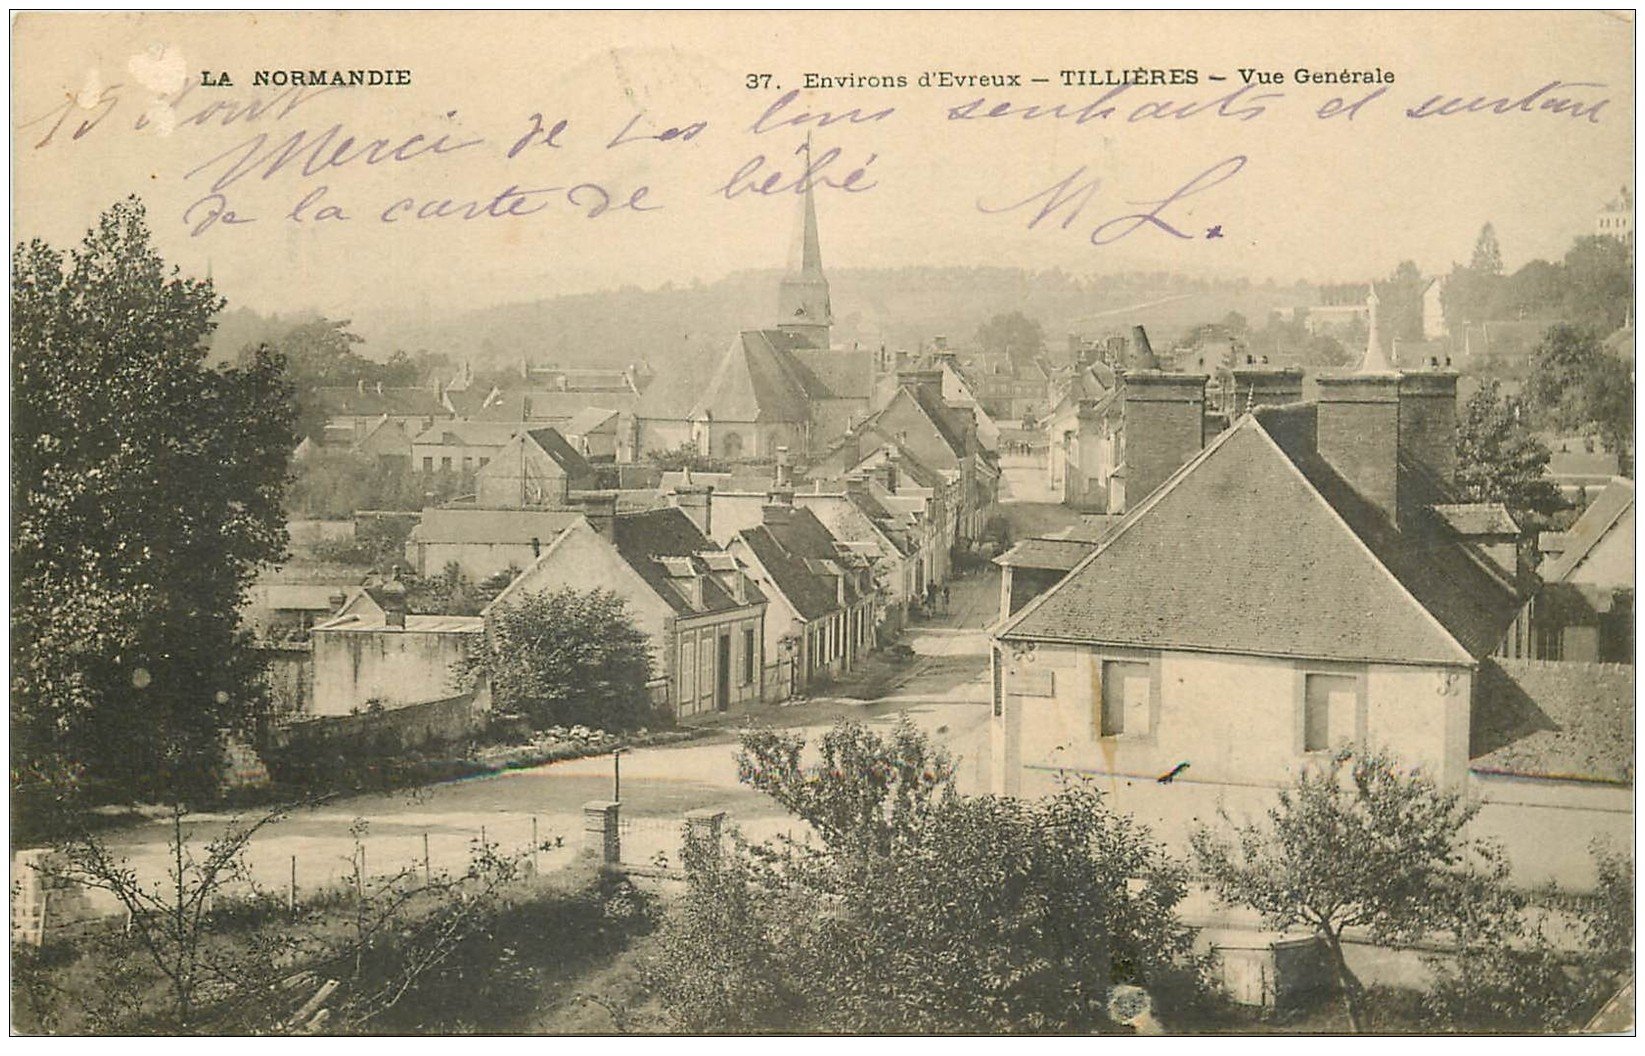 LA NORMANDIE
37. Environs d'Evreux — TILLIÈRES — Vue Genérale
15 Aout
Merci de tes bons souhaits et surtout
de la carte de bébé M L.